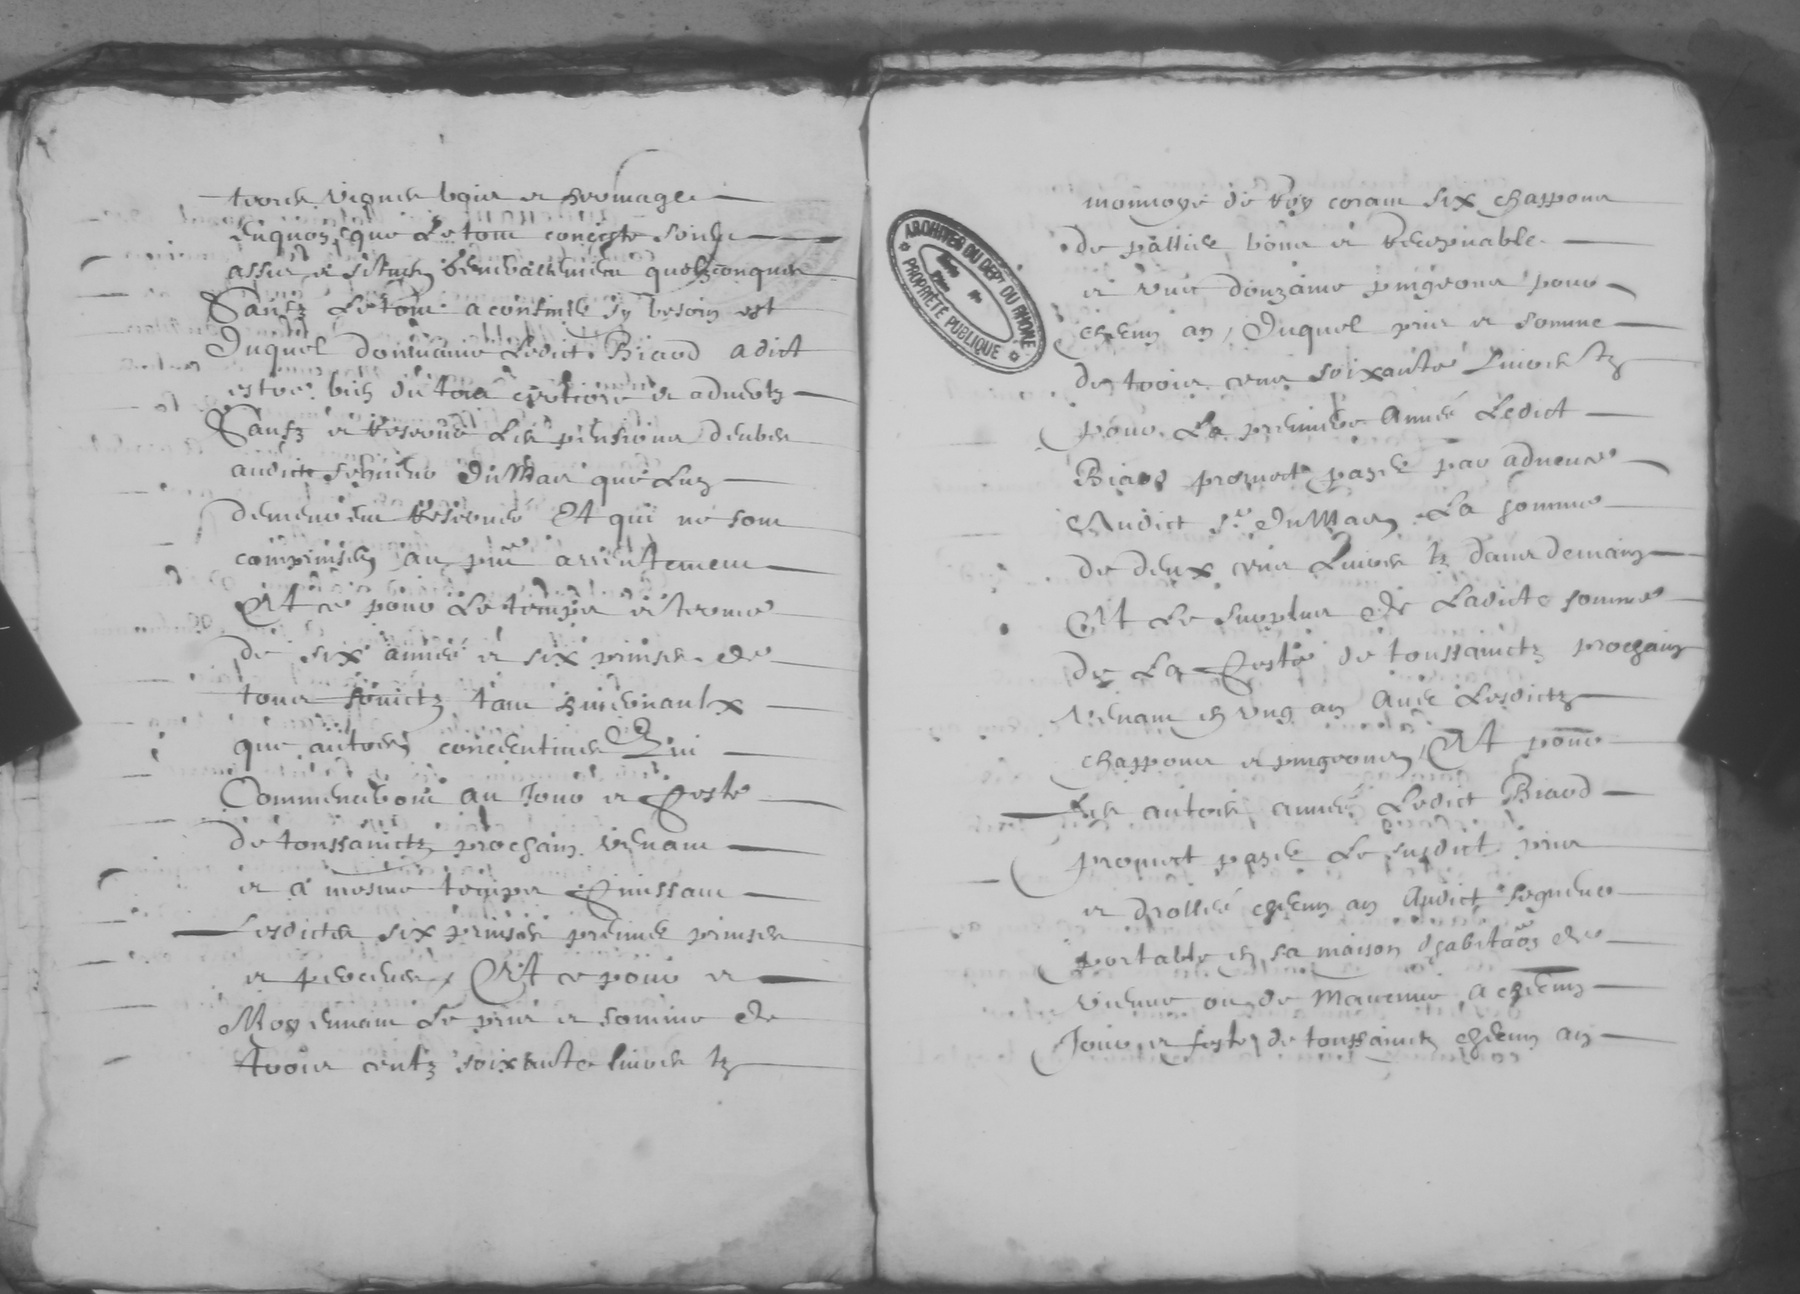 terres vignes boys et
enquoy que le tout conciste soient
assis et situés generallement quelzconques
Saufz le tout a confiner sy besoin est
Duquel dommaine Ledict Biard a dict
estre bien du tout certioré et advertz
Saufz et Reservé Les pensions deubes
audict seigneur du Mas que luy
demeurent Reservés Et qui ne sont
comprinses au pnt arrentement
Et ce pour Le temps et terme
de six années et six prinses de
tous fruictz tant
que autres Qui
Commenceront au Jour et feste
de toussainctz prochain venant
et a mesme temps finissant
Lesdictes six prinses premier prinses
et perceues, Et ce pour et
Moyennant Le pris et somme de
trois centz soixante livres tz
monnoye de Roy courant six chappons
de pallier bons et Recepvables
et huit douzaine pingeons pour
chacun an, Duquel pris et somme
de trois cens soixante Livres tz
pour La premiere Année Ledict
Biard promect payer par advance
Audict sr du Mas La somme
de deux cens Livres tz dans demain
Et Le surplus de Ladicte somme
de La feste de toussainctz prochain
venant en ung an Avec Lesdictz
chappons et pingeons, Et pour
Les autres années Ledict Biard
promect payer Le susdict pris
et chacun an Audict seigneur
portable en sa maison d'habitaon de
Vienne ou de a chacun
Jour et feste de toussainctz chacun an
ARCHIVES DU DEPT DU RHONE
PROPRIÉTÉ PUBLIQUE